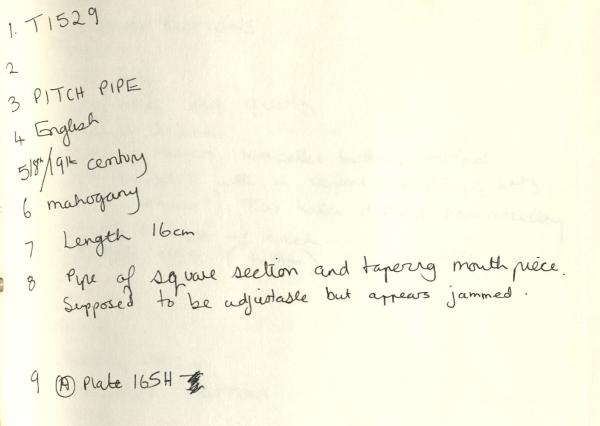 1. T1529
2
3 PITCH PIPE
4 English
5 18th/19th century
6 mahogany
7 Length 16cm
8 Pipe of square section and tapering mouth piece.
Supposed to be adjustable but appears jammed.
9 Ⓐ Plate 165H